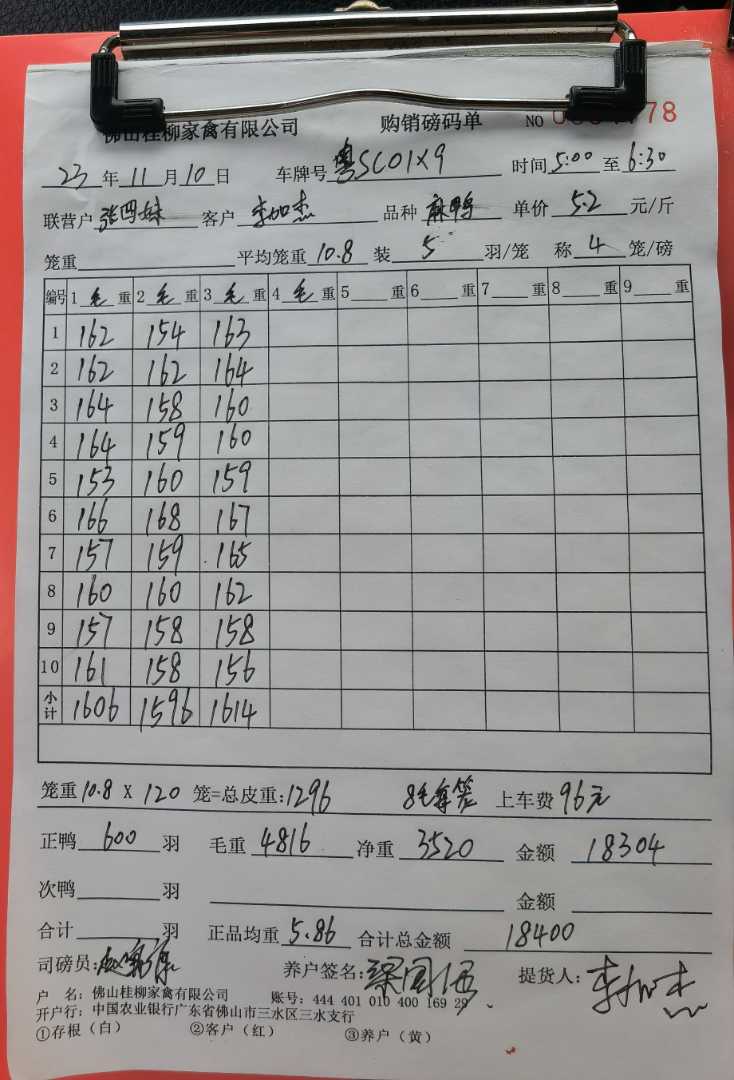 佛山桂柳家禽有限公司 购销磅码单 NO 78
23 年 11 月 10 日 车牌号 粤SC01X9 时间 5:00 至 6:30
联营户 张四妹 客户 李加杰 品种 麻鸭 单价 5.2 元/斤
笼重 平均笼重 10.8 装 5 羽/笼 称 4 笼/磅
编号 1 毛 重 2 毛 重 3 毛 重 4 毛 重 5 重 6 重 7 重 8 重 9 重
1 162 154 163
2 162 162 164
3 164 158 160
4 164 159 160
5 153 160 159
6 166 168 167
7 157 159 165
8 160 160 162
9 157 158 158
10 161 158 156
小计 1606 1596 1614
笼重 10.8 X 120 笼=总皮重:1296 8毛 上车费 96元
正鸭 600 羽 毛重 4816 净重 3520 金额 18304
次鸭 羽 金额
合计 羽 正品均重 5.86 合计总金额 18400
司磅员: 养户签名: 提货人: 李加杰
户 名: 佛山桂柳家禽有限公司 账号: 444 401 010 400 169 29
开户行: 中国农业银行广东省佛山市三水区三水支行
①存根（白） ②客户（红） ③养户（黄）